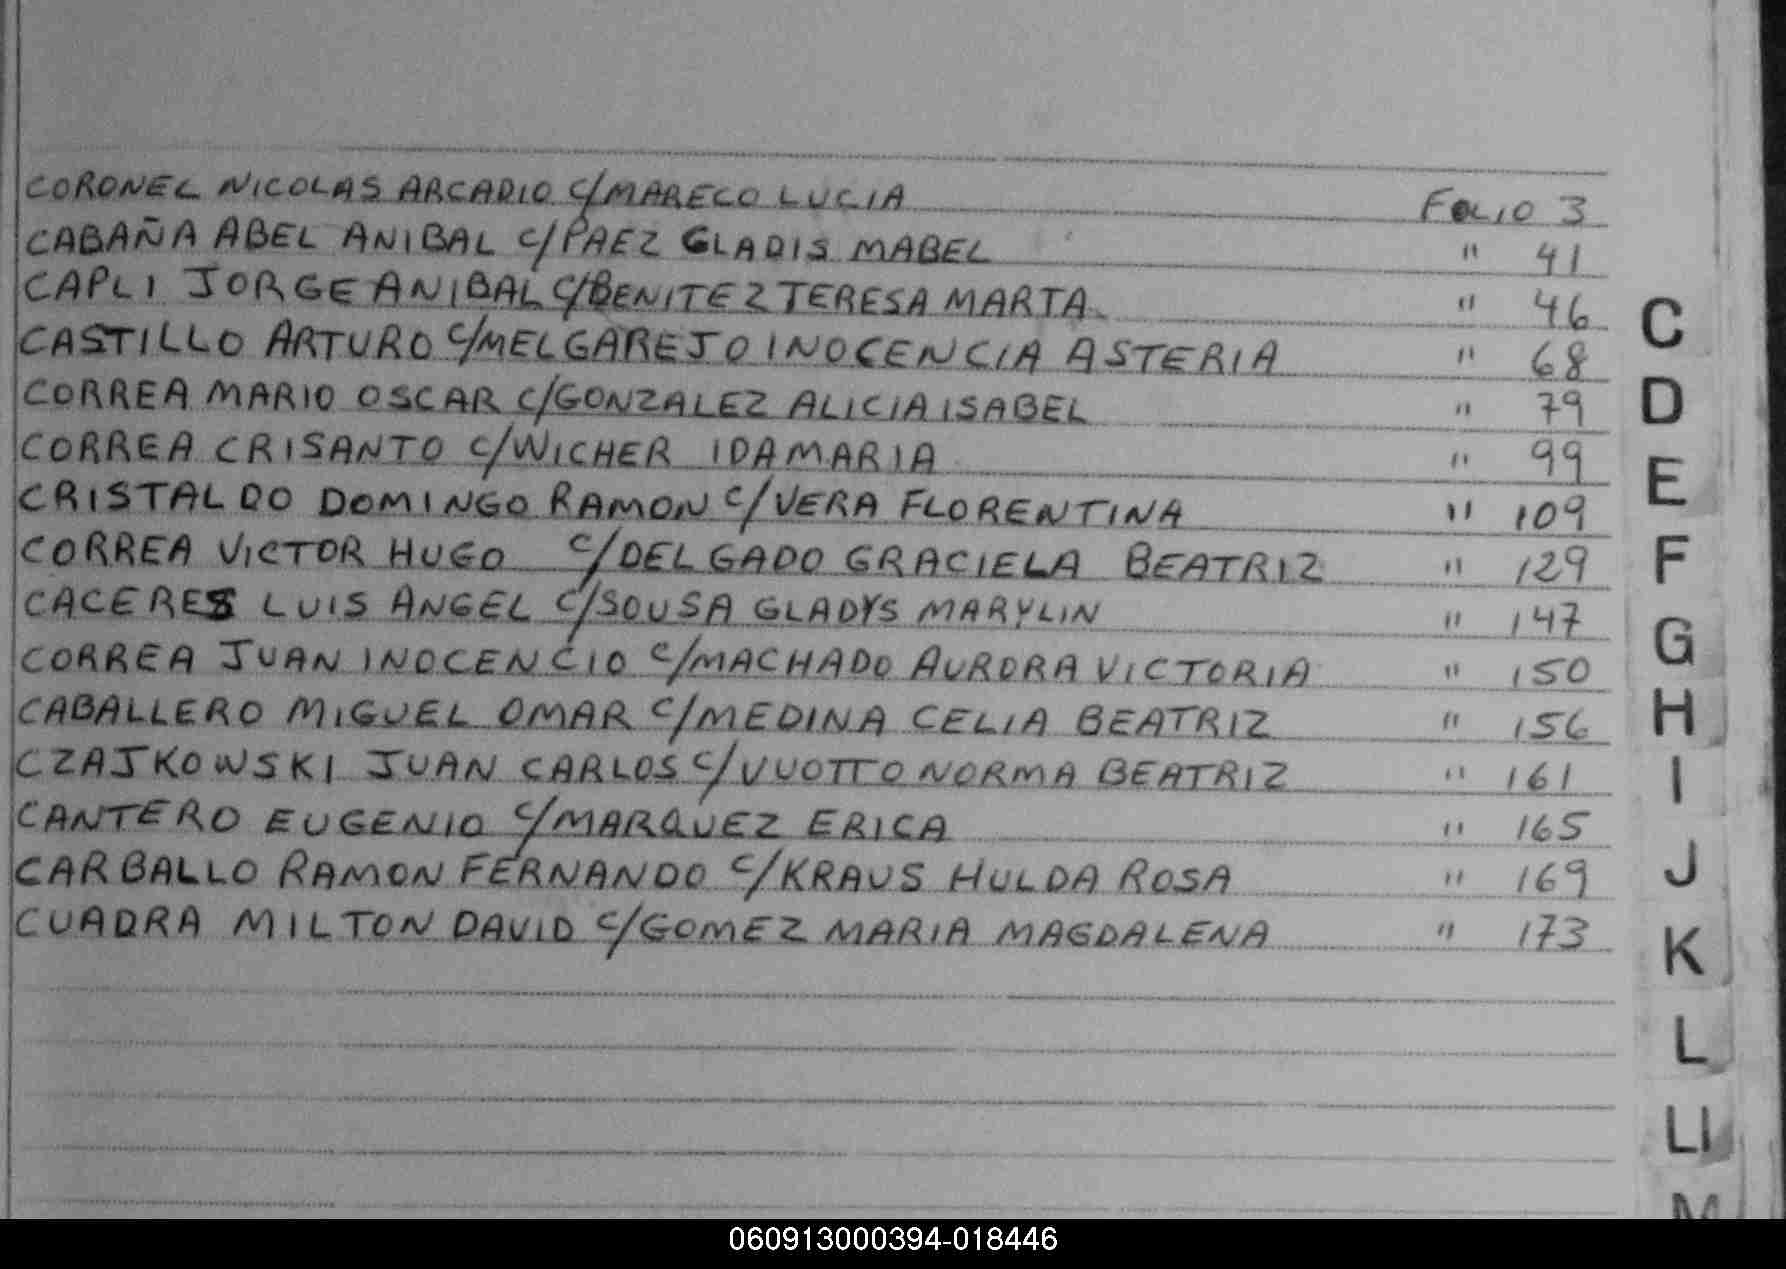 CORONEL NICOLAS ARCADIO C/MARECO LUCIA FOLIO 3
CABAÑA ABEL ANIBAL C/PAEZ GLADIS MABEL " 41
CAPLI JORGE ANIBAL C/BENITEZ TERESA MARTA " 46
CASTILLO ARTURO C/MELGAREJO INOCENCIA ASTERIA " 68
CORREA MARIO OSCAR C/GONZALEZ ALICIA ISABEL " 79
CORREA CRISANTO C/WICHER IDA MARIA " 99
CRISTALDO DOMINGO RAMON C/VERA FLORENTINA " 109
CORREA VICTOR HUGO C/DELGADO GRACIELA BEATRIZ " 129
CACERES LUIS ANGEL C/SOUSA GLADYS MARYLIN " 147
CORREA JUAN INOCENCIO C/MACHADO AURORA VICTORIA " 150
CABALLERO MIGUEL OMAR C/MEDINA CELIA BEATRIZ " 156
CZAJKOWSKI JUAN CARLOS C/VUOTTO NORMA BEATRIZ " 161
CANTERO EUGENIO C/MARQUEZ ERICA " 165
CARBALLO RAMON FERNANDO C/KRAUS HULDA ROSA " 169
CUADRA MILTON DAVID C/GOMEZ MARIA MAGDALENA " 173
C
D
E
F
G
H
I
J
K
L
Ll
M
060913000394-018446